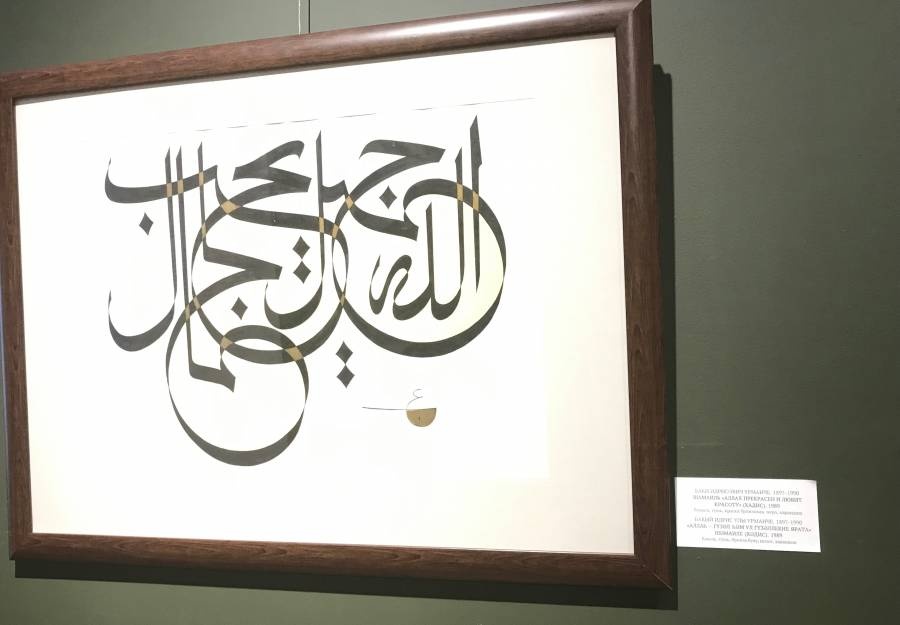 الله جميل يحب الجمال
ع
БАКИ ИДРИСОВИЧ УРМАНЧЕ. 1897–1990
ШАМАИЛЬ «АЛЛАХ ПРЕКРАСЕН И ЛЮБИТ
КРАСОТУ» (ХАДИС). 1989
Бумага, тушь, краска бронзовая, перо, карандаш
БАКЫЙ ИДРИС УЛЫ УРМАНЧЕ. 1897–1990
«АЛЛАҺ – ГҮЗӘЛ ҺӘМ УЛ ГҮЗӘЛЛЕКНЕ ЯРАТА»
ШӘМАИЛЕ (ХӘДИС). 1989